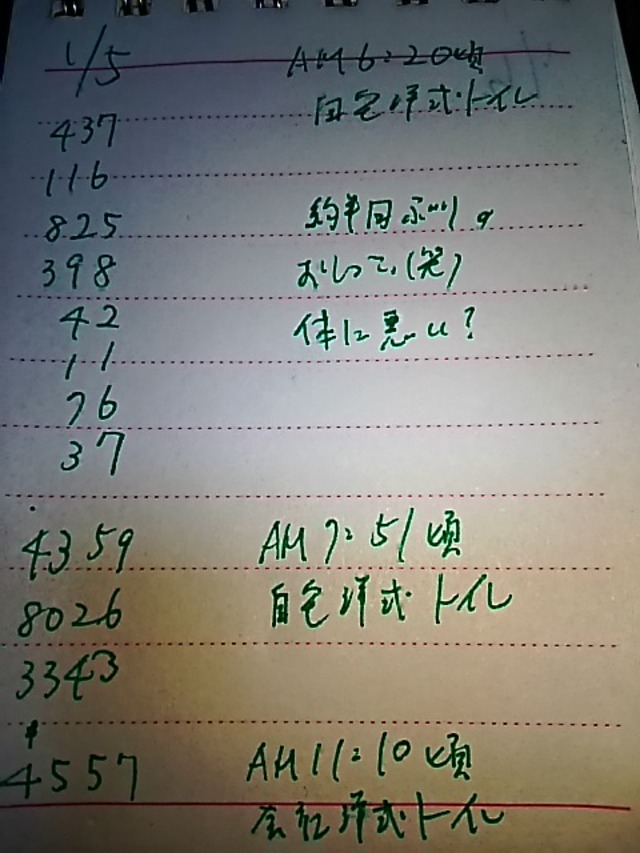 1/5 AM6:20頃
437 自宅洋式トイレ
116
825 約半日ぶりの
398 おしって、(笑)
42 体に悪い?
11
76
37
4359 AM7:51頃
8026 自宅洋式トイレ
3343
4557 AM11:10頃
会社洋式トイレ